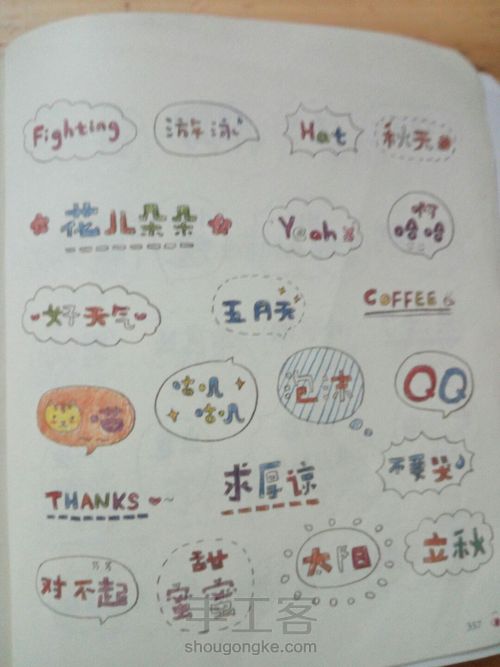 Fighting
游泳
Hat
秋天
花儿朵朵
Yeah
啊
哈哈
好天气
五月天
COFFEE
喵
咕叽
咕叽
泡沫
QQ
THANKS
求厚谅
不要哭
对不起
甜
蜜蜜
太阳
立秋
手工客
shougongke.com
357